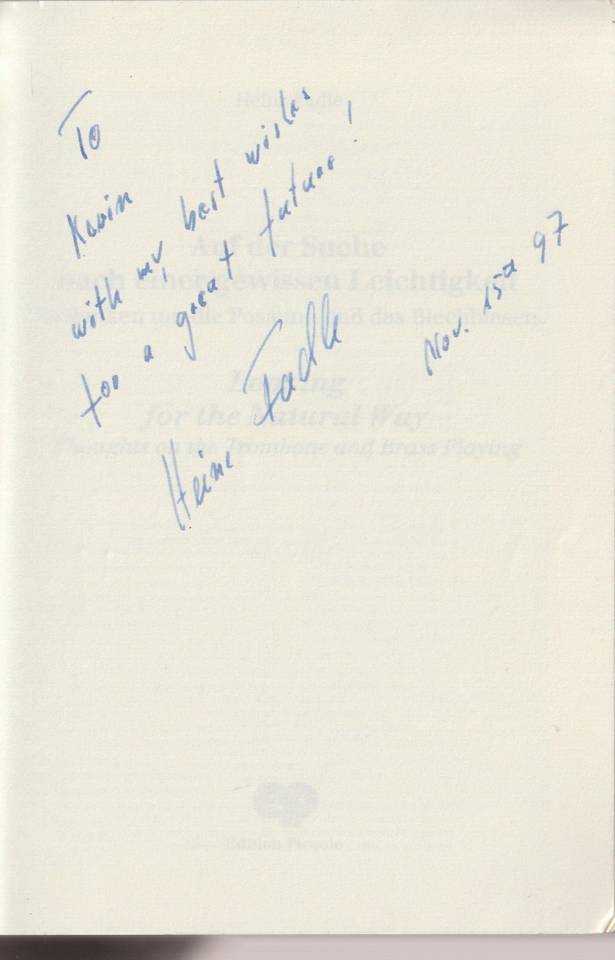 To
Kevin
with my best wishes
for a great future!
Heinz Fadle
Nov. 15th 97
Heinz Fadle
Auf der Suche
nach einer gewissen Leichtigkeit
Gedanken um die Posaune und das Blechblasen
Looking
for the Natural Way
Thoughts on the Trombone and Brass Playing
Edition Piccolo